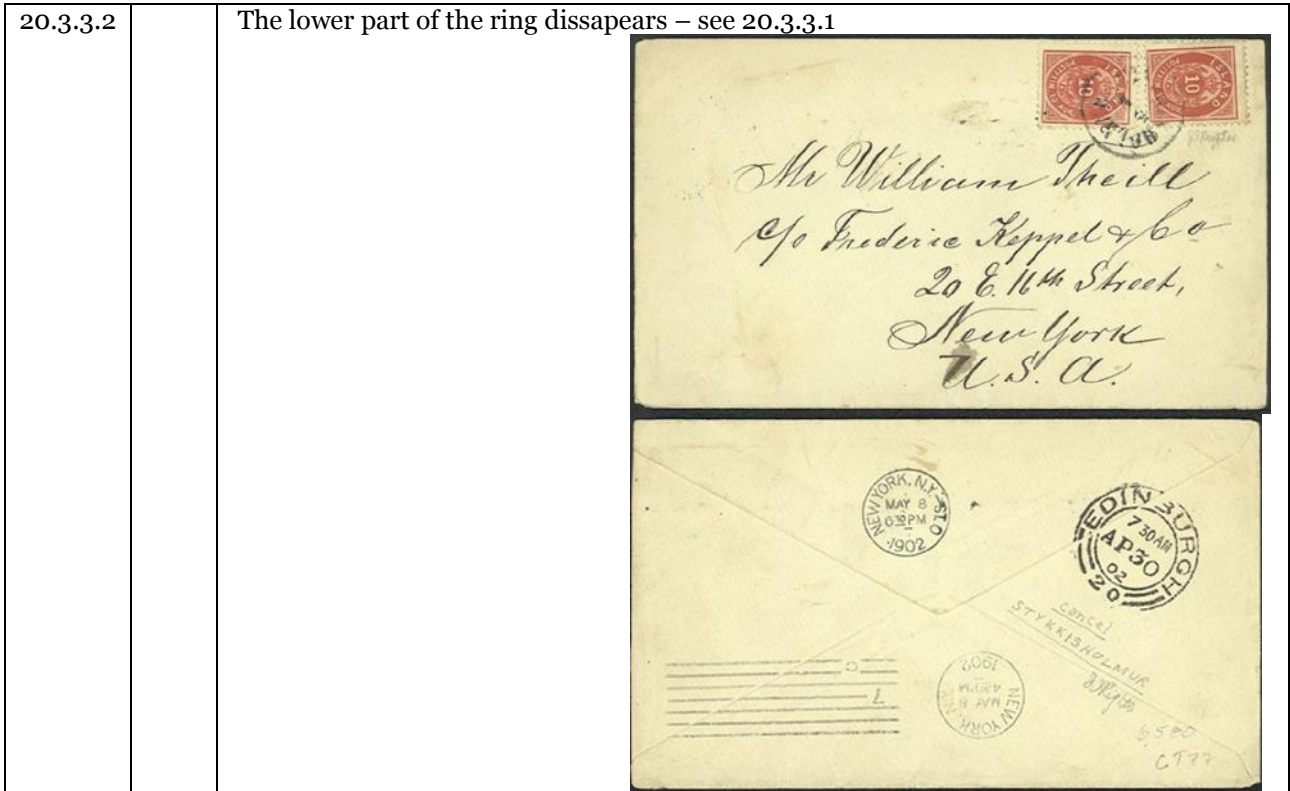 20.3.3.2
The lower part of the ring dissapears – see 20.3.3.1
ISLAND
10
ISLAND
10
Mr William Theill
c/o Frederic Keppel & Co
20 E. 16th Street,
New York
U.S.A.
NEW YORK, N.Y.
MAY 8
6 30 PM
1902
EDINBURGH
7 30 AM
AP 30
02
20
cancel
STYKKISHOLMUR
C
7
NEW YORK
MAY 8
PM
1902
6580
GT77